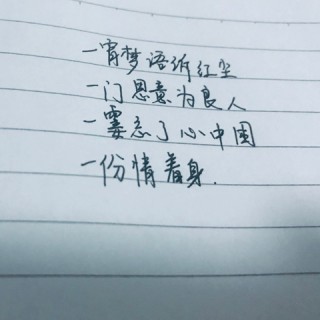 一宵梦语诉红尘
一门恩意为良人
一霎忘了心中困
一份情着身.